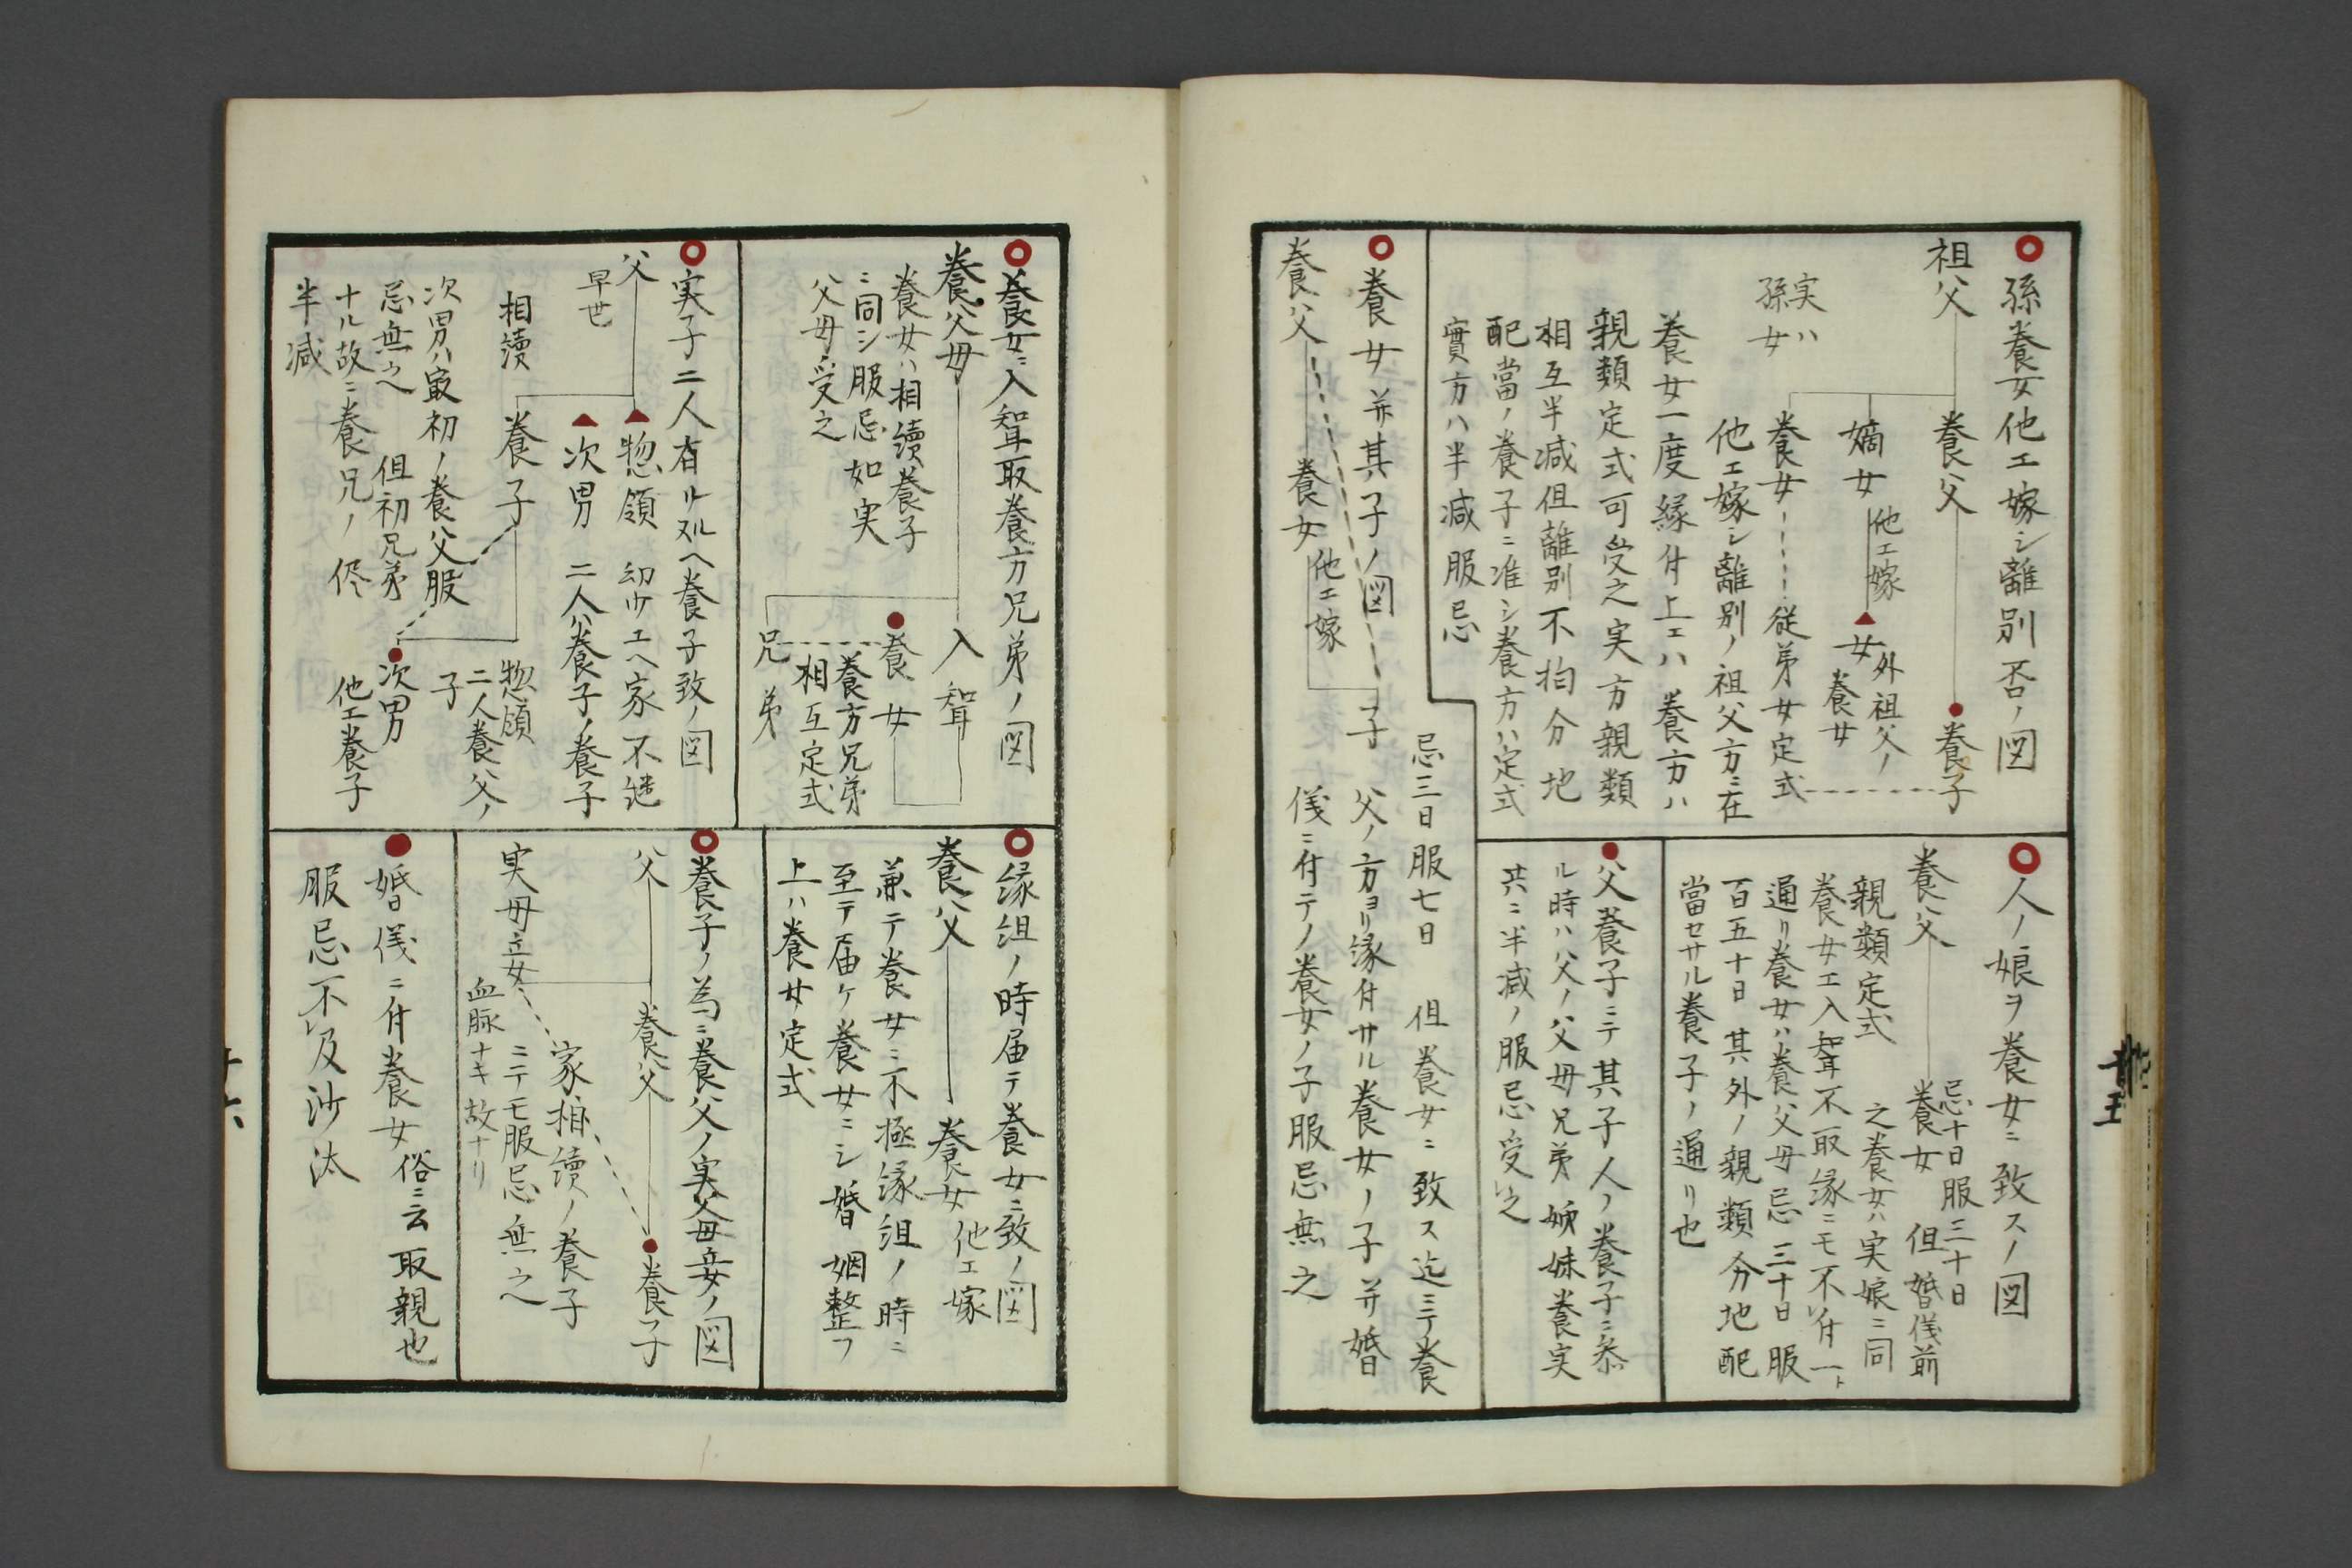 孫養女他エ嫁シ離別否ノ図
祖父
養父
養子
嫡女
他エ嫁
女
外祖父ノ
養女
実ハ
孫女
養女
従弟女定式
他エ嫁シ離別ノ祖父方ニ在
養女一度縁付上エハ養方ハ
親類定式可受之実方親類
相互半減但離別不拘分地
配當ノ養子ニ准シ養方ハ定式
實方ハ半減服忌
人ノ娘ヲ養女ニ致スノ図
養父
養女
忌十日服三十日
但婚儀前
親類定式
之養女ハ実娘ニ同
養女エ入聟不取縁ニモ不付一ト
通リ養女ハ養父母忌三十日服
百五十日其外ノ親類分地配
當セサル養子ノ通リ也
父養子ニテ其子人ノ養子ニ参
ル時ハ父ノ父母兄弟姉妹養実
共ニ半減ノ服忌受之
養女并其子ノ図
養父
養女
他エ嫁
子
忌三日服七日 但養女ニ致ス迄ニテ養
父ノ方ヨリ縁付サル養女ノ子并婚
儀ニ付テノ養女ノ子服忌無之
養女ニ入聟取養方兄弟ノ図
養父母
入聟
養女
兄弟
養女ハ相續養子
ニ同シ服忌如実
父母受之
養方兄弟
相互定式
実子二人有ル処ヘ養子致ノ図
父
早世
惣領 幼少エヘ家不継
次男 二人ハ養子ノ養子
相續
養子
惣領
二人養父ノ
子
次男
他エ養子
次男ハ最初ノ養父服
忌無之 但初兄弟
ナル故ニ養兄ノ侭
半減
縁組ノ時届テ養女ニ致ノ図
養父
養女
他エ嫁
兼テ養女ニ不極縁組ノ時ニ
至テ届ケ養女ニシ婚姻整フ
上ハ養女定式
養子ノ為ニ養父ノ実父母妾ノ図
父
養父
養子
実母妾
家相續ノ養子
ニテモ服忌無之
血脉ナキ故ナリ
婚儀ニ付養女俗ニ云取親也
服忌不及沙汰